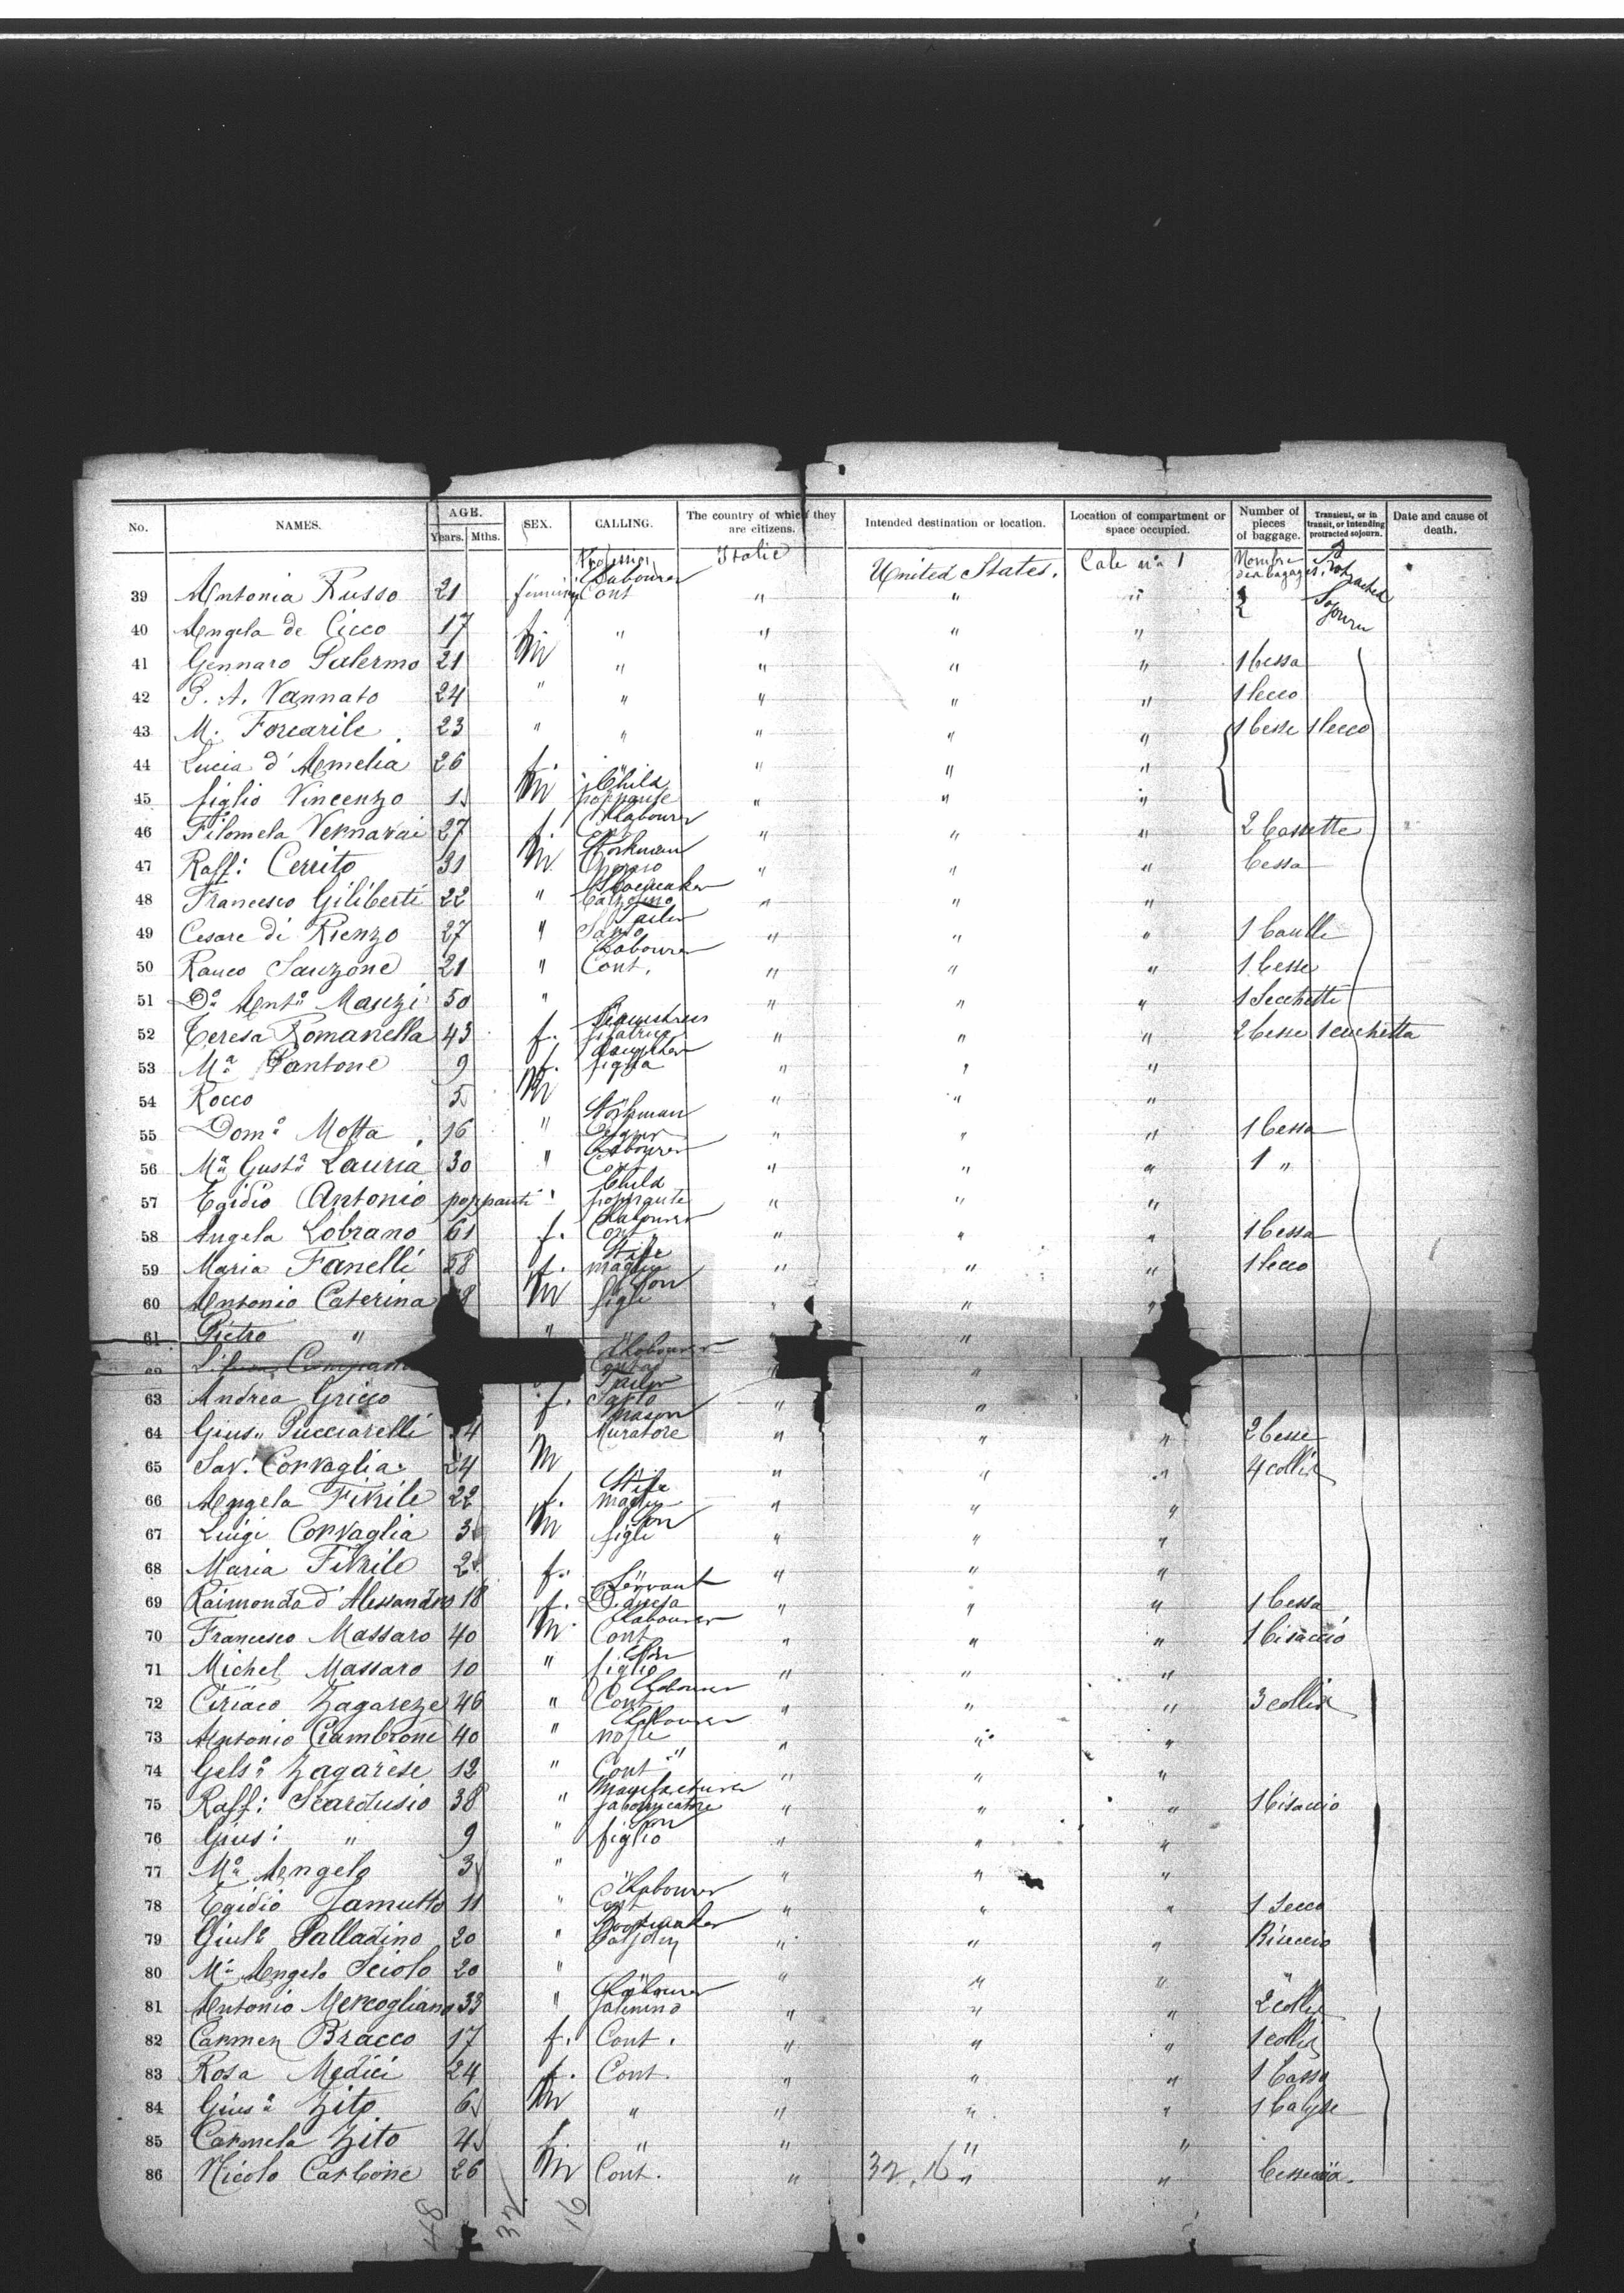 No. NAMES. AGE. Years. Mths. SEX. CALLING. The country of which they are citizens. Intended destination or location. Location of compartment or space occupied. Number of pieces of baggage. Transient, or in transit, or intending protracted sojourn. Date and cause of death.
Profession Italie United States. Cale no 1 Nombre des bagages. Protracted Sojourn
39 Antonia Russo 21 Labourer Cont " " " 2
40 Angela de Cicco 17 f. " " " "
41 Gennaro Palermo 21 M " " " " 1 Cessa
42 G. A. Vannato 24 " " " " " 1 Secco
43 M. Forcarile 23 " " " " " 1 Cesse 1 Secco
44 Lucia d'Amelia 26 f. " " "
45 figlio Vincenzo 1 M Child poppante " " "
46 Filomela Vernarai 27 f. Labourer Cont " " " 2 Cassette
47 Raff: Cerrito 31 M Workman " " " Cessa
48 Francesco Giliberti 22 " Shoemaker Calzolino " " "
49 Cesare di Rienzo 27 " Tailor Sarto " " " 1 Baulle
50 Rauco Sauzone 21 " Labourer Cont. " " " 1 Cesse
51 Do Anto Manzi 50 " " " " 1 Secchetti
52 Teresa Romanella 43 f. Seamstress " " " 2 Cesse
53 Ma Pantone 9 f. daughter figlia " " "
54 Rocco 5 M " " "
55 Domo Motta 16 " Workman " " " 1 Cessa
56 Ma Gusta Lauria 30 " Labourer Cont " " " 1 "
57 Egidio Antonio poppanti " Child poppante " " "
58 Angela Lobrano 61 f. Labourer Cont " " " 1 Cessa
59 Maria Fanelli 28 f. Wife moglie " " " 1 Secco
60 Antonio Caterina M Son figli " " "
61 Pietro " " " "
62 Labourer Contad " "
63 Andrea Gricco f. Tailor Sarto " "
64 Gius. Pucciarelli Mason Muratore " " " 2 Cesse
65 Sav. Corvaglia 24 M " " " 4 colli
66 Angela Fikile 22 f. Wife moglie " " "
67 Luigi Corvaglia 3 M Son figli " " "
68 Maria Fikile 2 f. " " "
69 Raimonda d'Alessandro 18 f. Servant " " " 1 Cessa
70 Francesco Massaro 40 M. Labourer Cont " " " 1 Bisaccio
71 Michel Massaro 10 " Son figlio " " "
72 Ciriaco Zagareze 46 " Labourer Cont " " " 3 colli
73 Antonio Ciambrone 40 " Labourer " " "
74 Gelso Zagarese 12 " Cont " " " "
75 Raff: Scardusio 38 " Manufacturer fabbricatore " " " 1 Bisaccio
76 Gius: " 9 " Son figlio " " "
77 Ma Angelo 3 " " " "
78 Egidio Jamutto 11 " Labourer Cont " " " 1 Secco
79 Giule Palladino 20 " Bootmaker " " "
80 Ma Angelo Sciolo 20 " " " "
81 Antonio Mercogliano 33 " Labourer " " " 2 colli
82 Carmen Bracco 17 f. Cont. " " " 1 colli
83 Rosa Medici 24 f. Cont. " " " 1 Cassa
84 Giusa Zito 6 M " " " "
85 Carmela Zito 4 f. " " " "
86 Nicolo Carbone 26 M Cont. " 32, 16 " "
48 32 16